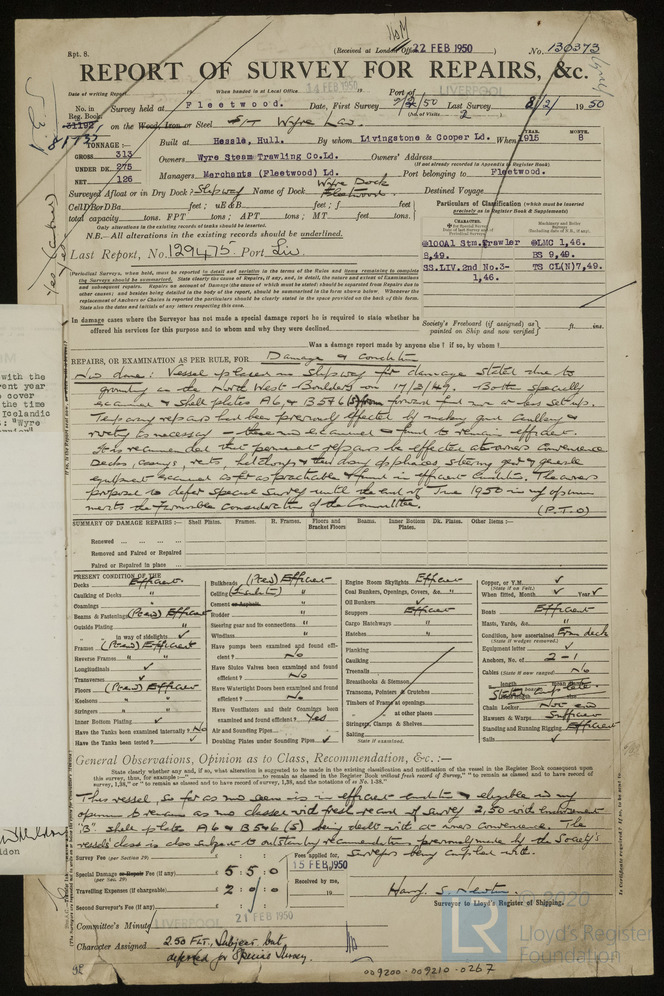 Rpt. 8.
(Received at London Office 22 FEB 1950)
No. 130373
REPORT OF SURVEY FOR REPAIRS, &c.
Date of writing Report 19 When handed in at Local Office 14 FEB 1950 19 Port of LIVERPOOL
No. in Reg. Book. Survey held at Fleetwood. Date, First Survey 7/2/50 Last Survey 8/2/ 1950
(No. of Visits 2)
31192 on the Wood, Iron or Steel S/T Wyre Law.
81735
TONNAGE:—
GROSS 313
UNDER DK. 275
NET 126
Built at Hessle, Hull. By whom Livingstone & Cooper Ld. When YEAR. 1915 MONTH. 8
Owners Wyre Steam Trawling Co.Ld. Owners' Address
(If not already recorded in Appendix to Register Book)
Managers Merchants (Fleetwood) Ld. Port belonging to Fleetwood.
Surveyed Afloat or in Dry Dock? Slipway Name of Dock Wyre Dock Fleetwood. Destined Voyage
total capacity tons. FPT tons; APT tons; MT feet tons.
Only alterations in the existing records of tanks should be inserted.
N.B.—All alterations in the existing records should be underlined.
Last Report, No. 129475 Port Liv.
Particulars of Classification (which must be inserted precisely as in Register Book & Supplements)
@100A1 Stm.Trawler @LMC 1,46.
8,49. BS 9,49.
SS.LIV.2nd No.3- TS CL(N)7,49.
1,46.
In damage cases where the Surveyor has not made a special damage report he is required to state whether he
offered his services for this purpose to whom and why they were declined.
Society's Freeboard (if assigned) as painted on Ship and now verified ft. ins.
Was a damage report made by anyone else? if so, by whom?
REPAIRS, OR EXAMINATION AS PER RULE, FOR Damage & Condition
Now done: Vessel placed on slipway for damage stated due to
grounding on the North West Boulders on 17/2/49. Bottom specially
examined & shell plates A6, & B5 & 6 (S) from forward found more or less set up.
Temporary repairs had been previously effected by making good caulking &
riveting as necessary – these now examined & found to remain efficient.
It is recommended that permanent repairs be effected at owners convenience
Decks, casings, vents, hatchways & their closing appliances, steering gear & general
equipment examined as far as practicable & found in efficient condition. The owners
proposal to defer Special Survey until the end of June 1950 in my opinion
merits the favourable consideration of the Committee.
(P.T.O)
SUMMARY OF DAMAGE REPAIRS:— Shell Plates. Frames. R. Frames. Floors and Bracket Floors Beams. Inner Bottom Plates. Dk. Plates. Other Items:—
Renewed
Removed and Faired or Repaired
Faired or Repaired in place
PRESENT CONDITION OF THE
Decks Efficient.
Caulking of Decks "
Coamings "
Beams & Fastenings (Pced) Efficient
Outside Plating "
" in way of sidelights ✓
Frames (Pced) Efficient
Reverse Frames
Longitudinals ✓
Transverses ✓
Floors (Pced) Efficient
Keelsons " "
Stringers " "
Inner Bottom Plating ✓
Have the Tanks been examined internally? No
Have the Tanks been tested? ✓
Bulkheads (Pced) Efficient
Ceiling "
Cement or Asphalt. "
Rudder "
Steering gear and its connections "
Windlass "
Have pumps been examined and found efficient? No
Have Sluice Valves been examined and found efficient? No
Have Watertight Doors been examined and found efficient? No
Have Ventilators and their Coamings been examined and found efficient? Yes
Air and Sounding Pipes
Doubling Plates under Sounding Pipes ✓
Engine Room Skylights Efficient
Coal Bunkers, Openings, Covers, &c. "
Oil Bunkers ✓
Scuppers Efficient
Cargo Hatchways "
Hatches "
Planking
Caulking
Treenails
Breasthooks & Stemson
Transoms, Pointers & Crutches
Timbers of Frame at openings
" " at other places
Stringers, Clamps & Shelves
Salting
State if examined.
Copper, or Y.M. ✓
(State if on Felt.)
When fitted, Month ✓ Year ✓
Boats Efficient
Masts, Yards, &c. "
Condition, how ascertained From deck
(State if wedges removed).
Equipment letter ✓
Anchors, No. of 2 - 1
Cables (State if now ranged) No
Stated complete.
Chain Locker Not exd
Hawsers & Warps Sufficient
Standing and Running Rigging Efficient
Sails ✓
General Observations, Opinion as to Class, Recommendation, &c. :—
State clearly whether any, and if so, what alteration is suggested to be made in the existing classification and notification of the vessel in the Register Book consequent upon
This vessel, so far as now seen is in efficient condition & eligible in my
opinion to remain as now classed with fresh record of Survey 2,50 with endorsement
"B" shell plates A6 & B5&6 (S) being dealt with at owners convenience. The
vessels class is also subject to outstanding recommendations previously made by the Society's
Surveyors being complied with.
Survey Fee (per Section 29) £
Special Damage or Repair Fee (if any) £ 5 : 5 : 0
(per Sec. 29).
Travelling Expenses (if chargeable) £ 2 : 9 : 0
Second Surveyor's Fee (if any) £
Fees applied for, 15 FEB 1950
Received by me, 19
Harry S. Newton.
Surveyor to Lloyd's Register of Shipping.
Committee's Minute LIVERPOOL 21 FEB 1950
Character Assigned 2.50 FLT. Subject but
deferred for Special Survey.
© 2020
LR
Lloyd's Register
Foundation
009200-009210-0267
with the
rent year
cover
the time
Icelandic
: "Wyre